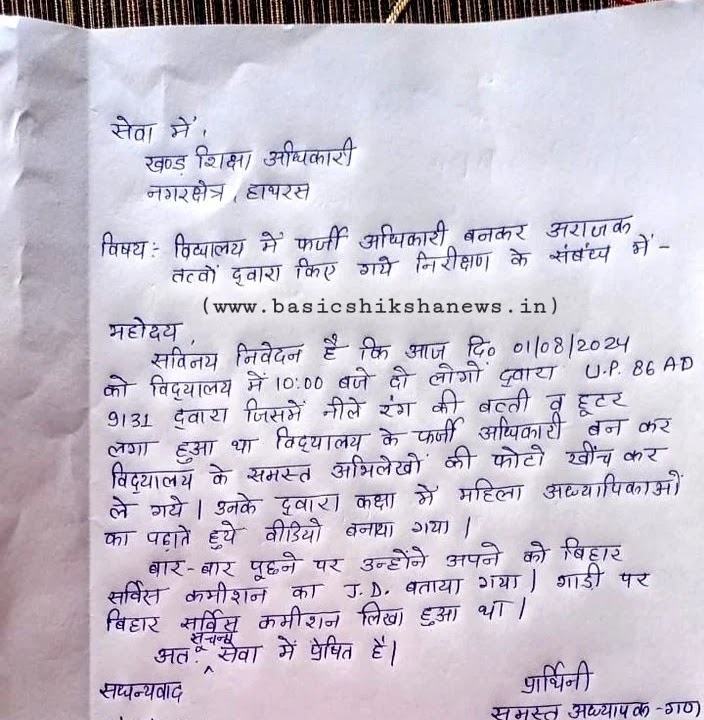 सेवा में,
खण्ड शिक्षा अधिकारी
नगरक्षेत्र, हाथरस
विषय:- विद्यालय में फर्जी अधिकारी बनकर अराजक
तत्वों द्वारा किए गये निरीक्षण के संबंध में -
(www.basicshikshanews.in)
महोदय,
सविनय निवेदन है कि आज दि० 01/08/2024
को विद्यालय में 10:00 बजे दो लोगों द्वारा U.P. 86 AD
9131 द्वारा जिसमें नीले रंग की बत्ती व हूटर
लगा हुआ था विद्यालय के फर्जी अधिकारी बन कर
विद्यालय के समस्त अभिलेखों की फोटो खींच कर
ले गये। उनके द्वारा कक्षा में महिला अध्यापिकाओं
का पढ़ाते हुये वीडियो बनाया गया।
बार-बार पूछने पर उन्होंने अपने को बिहार
सर्विस कमीशन का J.D. बताया गया। गाड़ी पर
बिहार सर्विस कमीशन लिखा हुआ था।
अतः सूचनार्थ सेवा में प्रेषित है।
सधन्यवाद
प्रार्थिनी
समस्त अध्यापक-गण